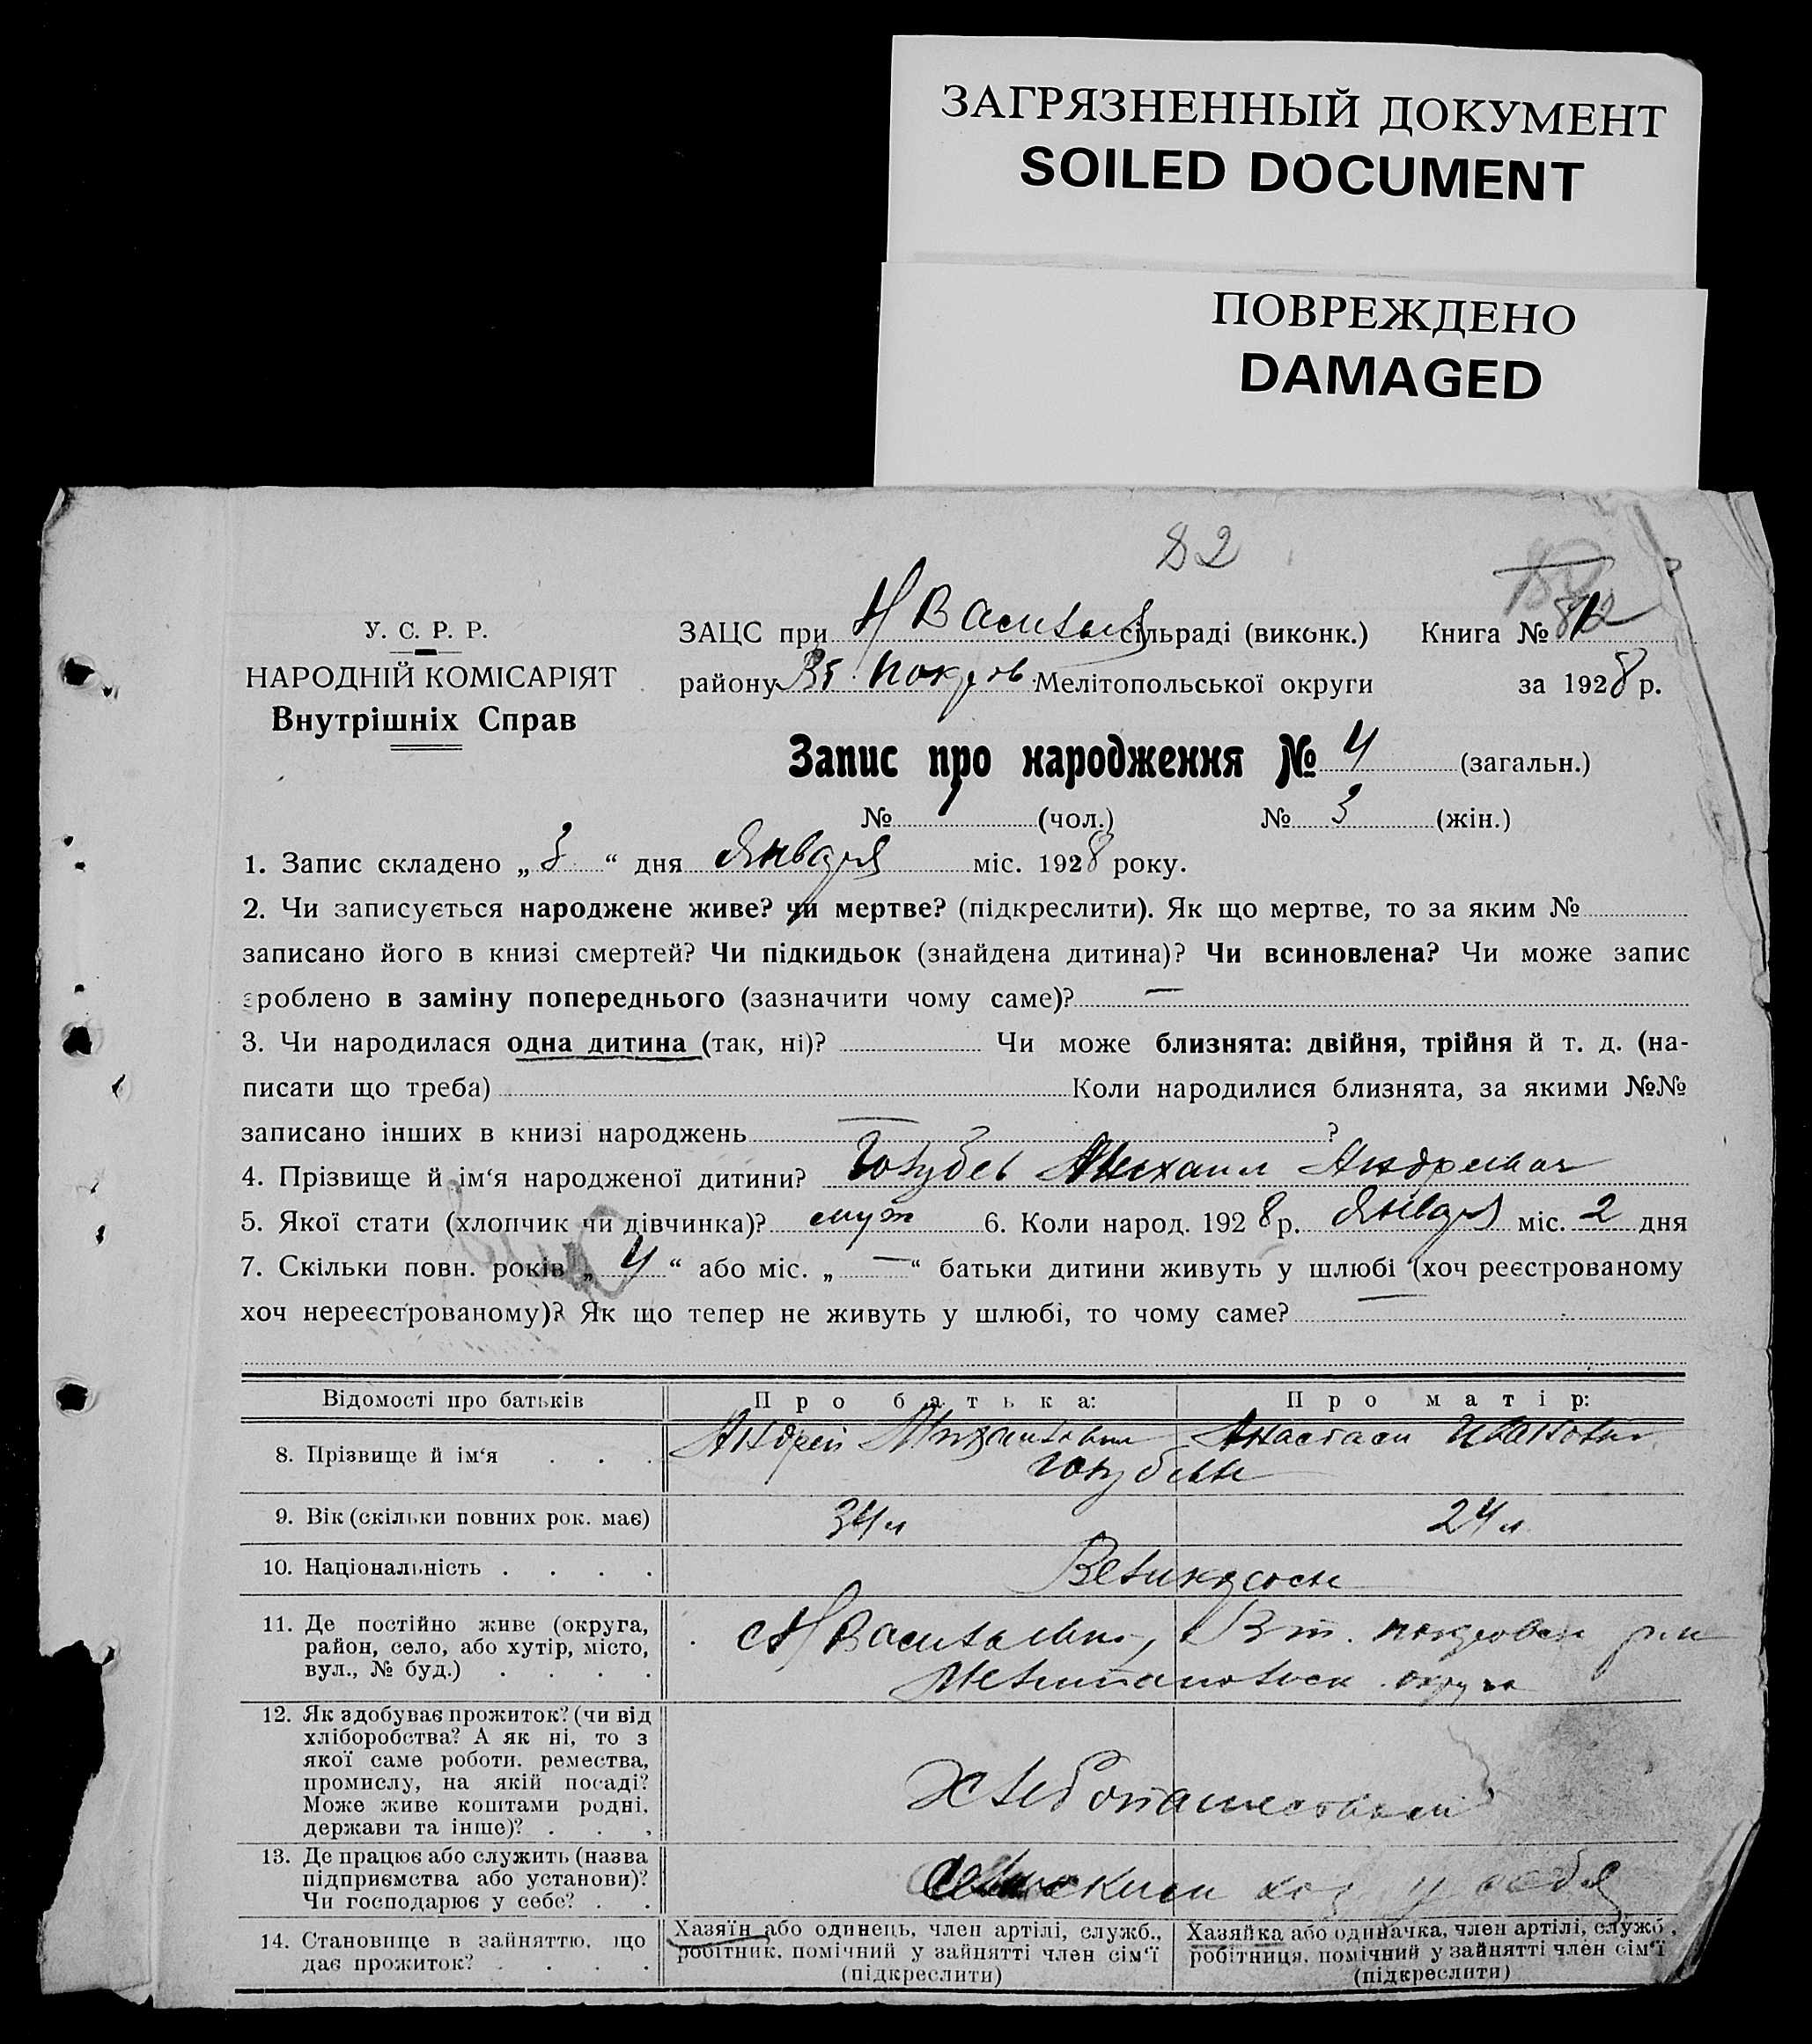 ЗАГРЯЗНЕННЫЙ ДОКУМЕНТ
SOILED DOCUMENT
ПОВРЕЖДЕНО
DAMAGED
82
У. С. Р. Р.
НАРОДНІЙ КОМІСАРІЯТ
Внутрішніх Справ
ЗАЦС при Н Васильев сільраді (виконк.) Книга №
району Вт. Покров Мелітопольської округи за 1928 р.
Запис про народження № 4 (загальн.)
№ 1 (чол.) № 3 (жін.)
1. Запис складено „ 3 “ дня Января міс. 1928 року.
2. Чи записується народжене живе? чи мертве? (підкреслити). Як що мертве, то за яким №
записано його в книзі смертей? Чи підкидьок (знайдена дитина)? Чи всиновлена? Чи може запис
зроблено в заміну попереднього (зазначити чому саме)? —
3. Чи народилася одна дитина (так, ні)? Чи може близнята: двійня, трійня й т. д. (на-
писати що треба) Коли народилися близнята, за якими №№
записано інших в книзі народжень — ?
4. Прізвище й ім‘я народженої дитини? Голубев Михаил Андреевич
5. Якої стати (хлопчик чи дівчинка)? муж 6. Коли народ. 1928 р. Января міс. 2 дня
7. Скільки повн. років „ 4 “ або міс. „ — “ батьки дитини живуть у шлюбі (хоч реєстрованому
хоч нереєстрованому)? Як що тепер не живуть у шлюбі, то чому саме? —
Відомості про батьків Про батька: Про матір:
8. Прізвище й ім‘я . . . Андрей Михайлович Анастаси Иванович
Голубевы
9. Вік (скільки повних рок. має) 34 л 24 л
10. Національність . . . . Великороссы
11. Де постійно живе (округа,
район, село, або хутір, місто,
вул., № буд.) . . . .
с Н Васильевка, Вт. покровск р-на
Мелитопольск. округа
12. Як здобуває прожиток? (чи від
хліборобства? А як ні, то з
якої саме роботи, ремества,
промислу, на якій посаді?
Може живе коштами родні,
держави та інше)? . . .
Хлебопашеством
13. Де працює або служить (назва
підприємства або установи)?
Чи господарює у себе? . .
Сельским хоз у себя
14. Становище в зайняттю, що
дає прожиток? . . . .
Хазяїн або одинець, член артілі, служб.,
робітник, помічний у зайнятті член сім‘ї
(підкреслити)
Хазяйка або одиначка, член артілі, служб.,
робітниця, помічний у зайнятті член сім‘ї
(підкреслити)